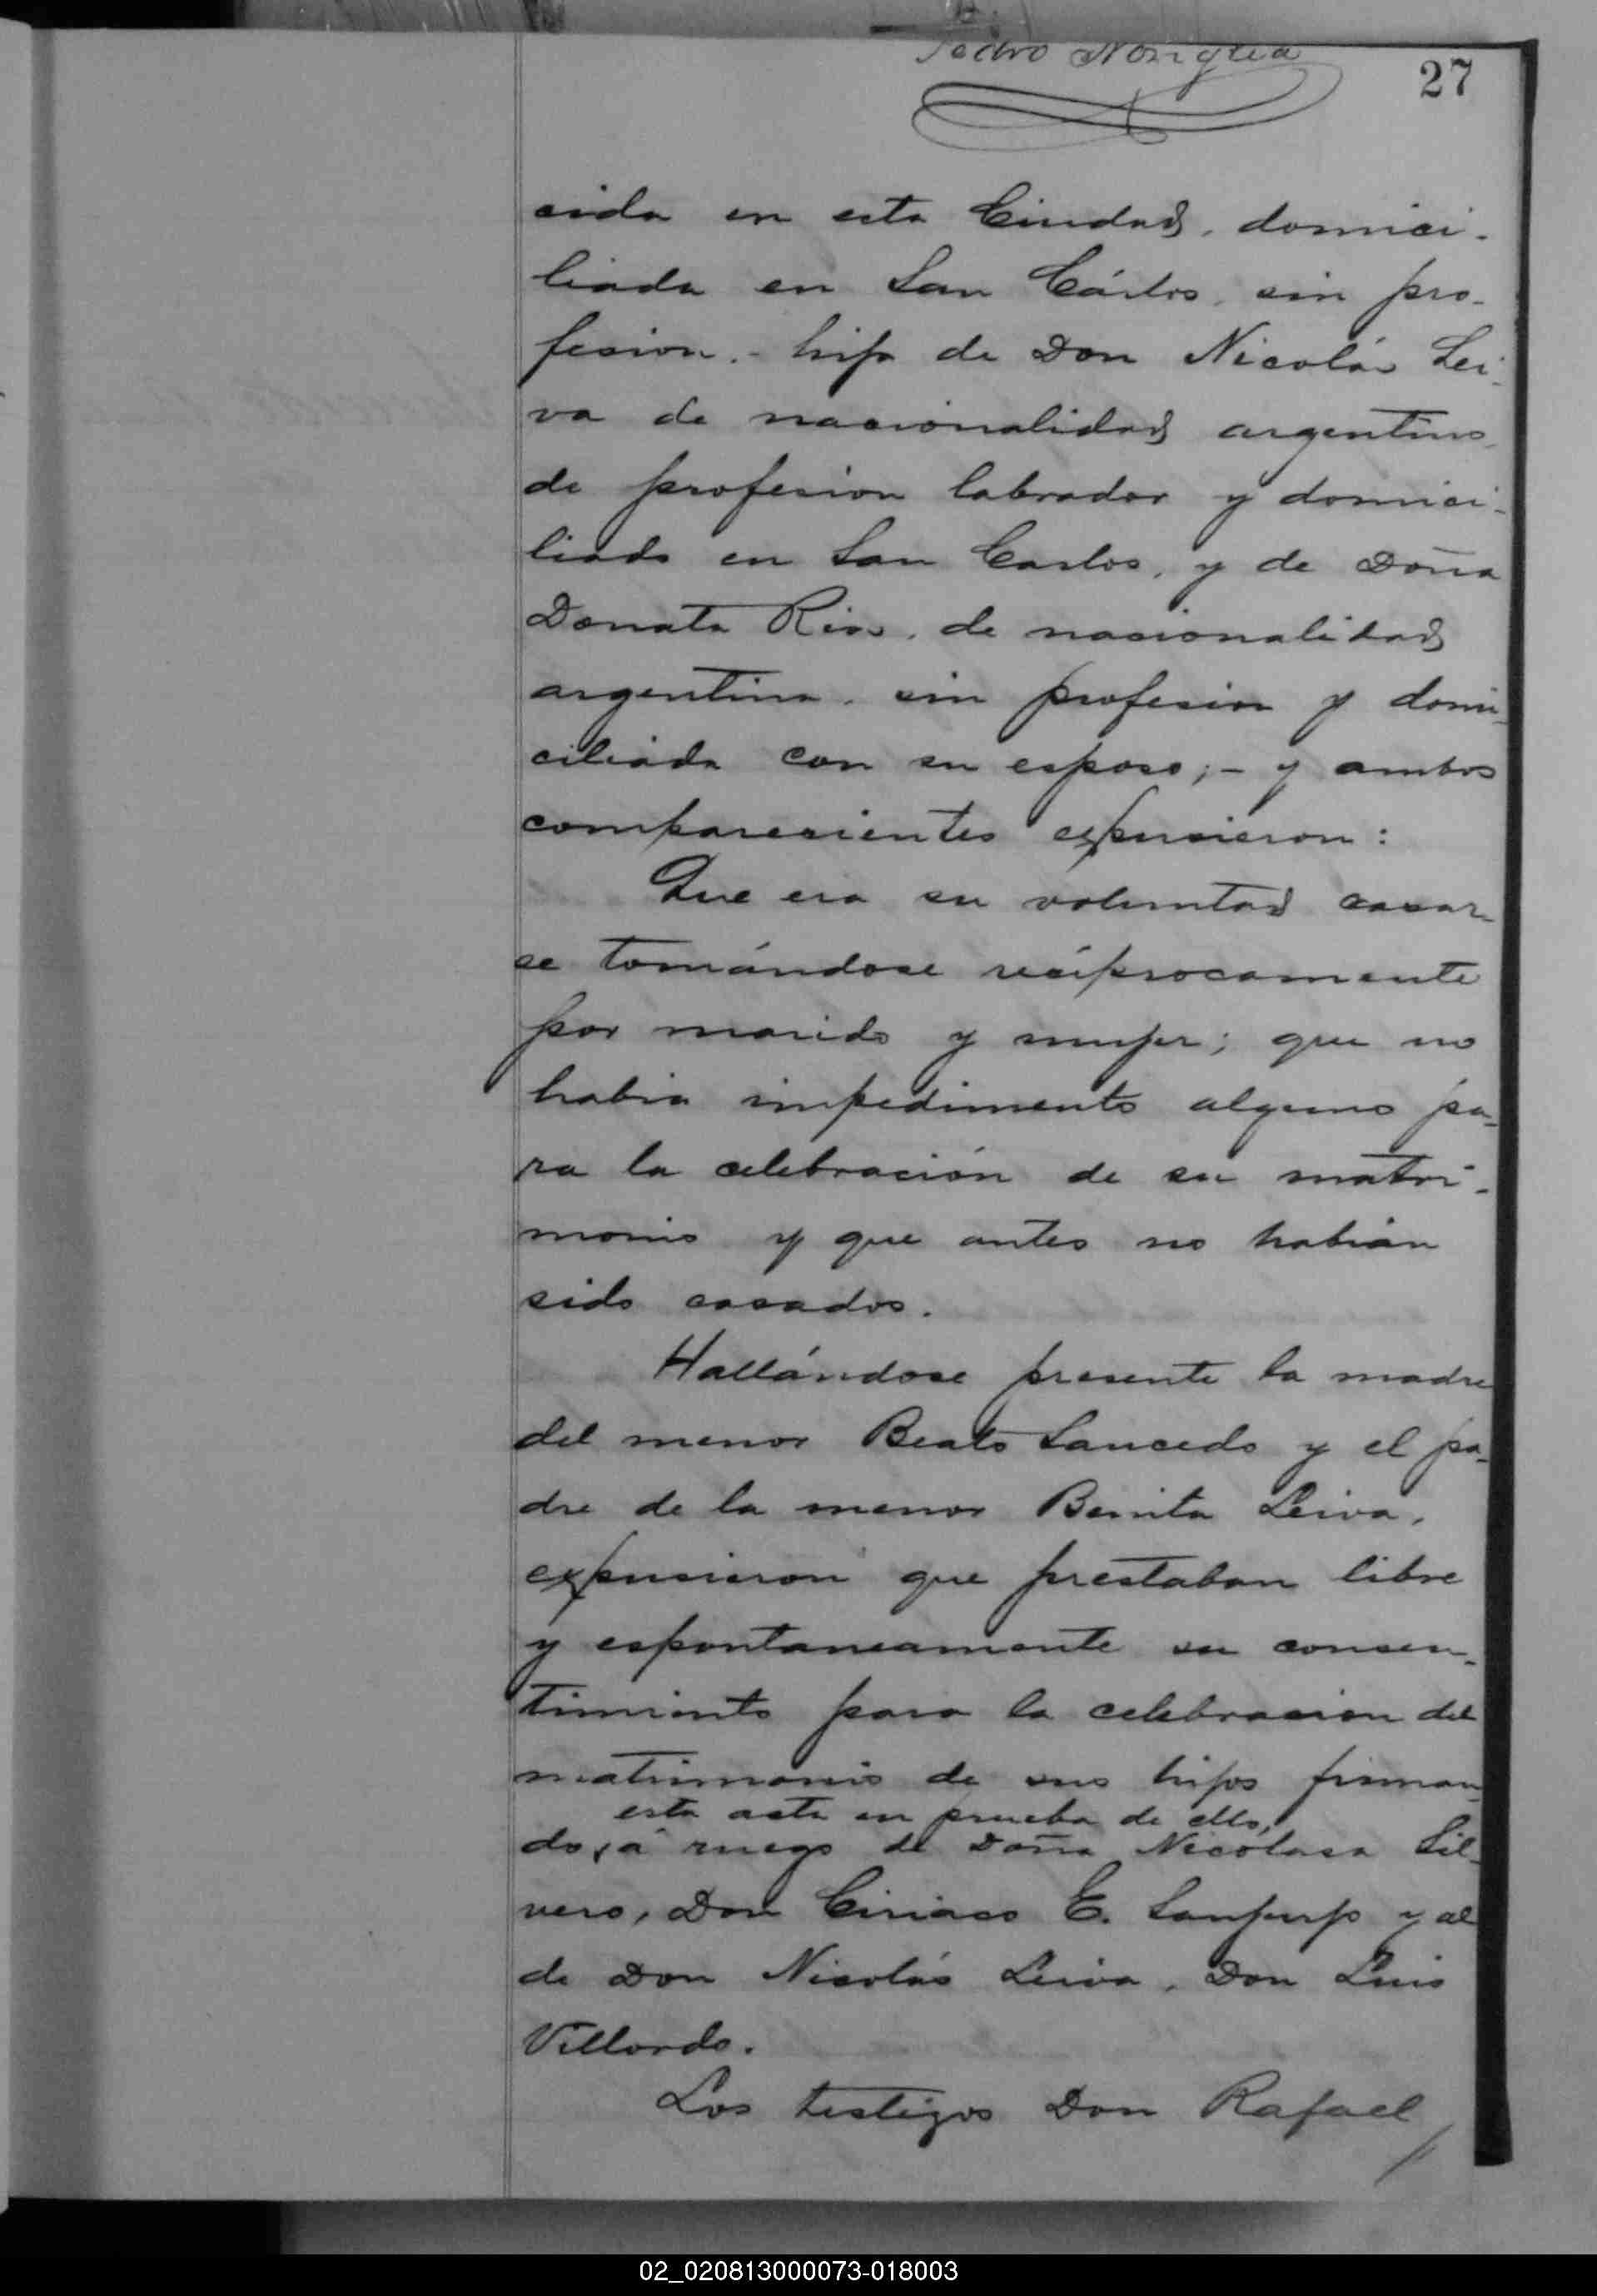 Pedro Noriguia
27
cida en esta Ciudad, domici-
liada en San Cárlos, sin pro-
fesion.- hija de Don Nicolás Lei-
va de nacionalidad argentino
de profesion labrador y domici-
liado en San Carlos, y de Doña
Donata Rios, de nacionalidad
argentina, sin profesion y domi-
ciliada con su esposo;- y ambos
comparecientes expusieron:
Que era su voluntad casar-
se tomándose recíprocamente
por marido y mujer; que no
habia impedimento alguno pa-
ra la celebración de su matri-
monio y que antes no habian
sido casados.
Hallándose presente la madre
del menor Beato Saucedo y el pa-
dre de la menor Benita Leiva,
expusieron que prestaban libre
y espontaneamente su consen-
timiento para la celebracion del
matrimonio de sus hijos firman-
esta acta en prueba de ello,
do, á ruego de Doña Nicolasa Sil-
vero, Don Ciriaco E. Sanjurjo y al
de Don Nicolás Leiva, Don Luis
Villordo.
Los testigos Don Rafael
02_020813000073-018003